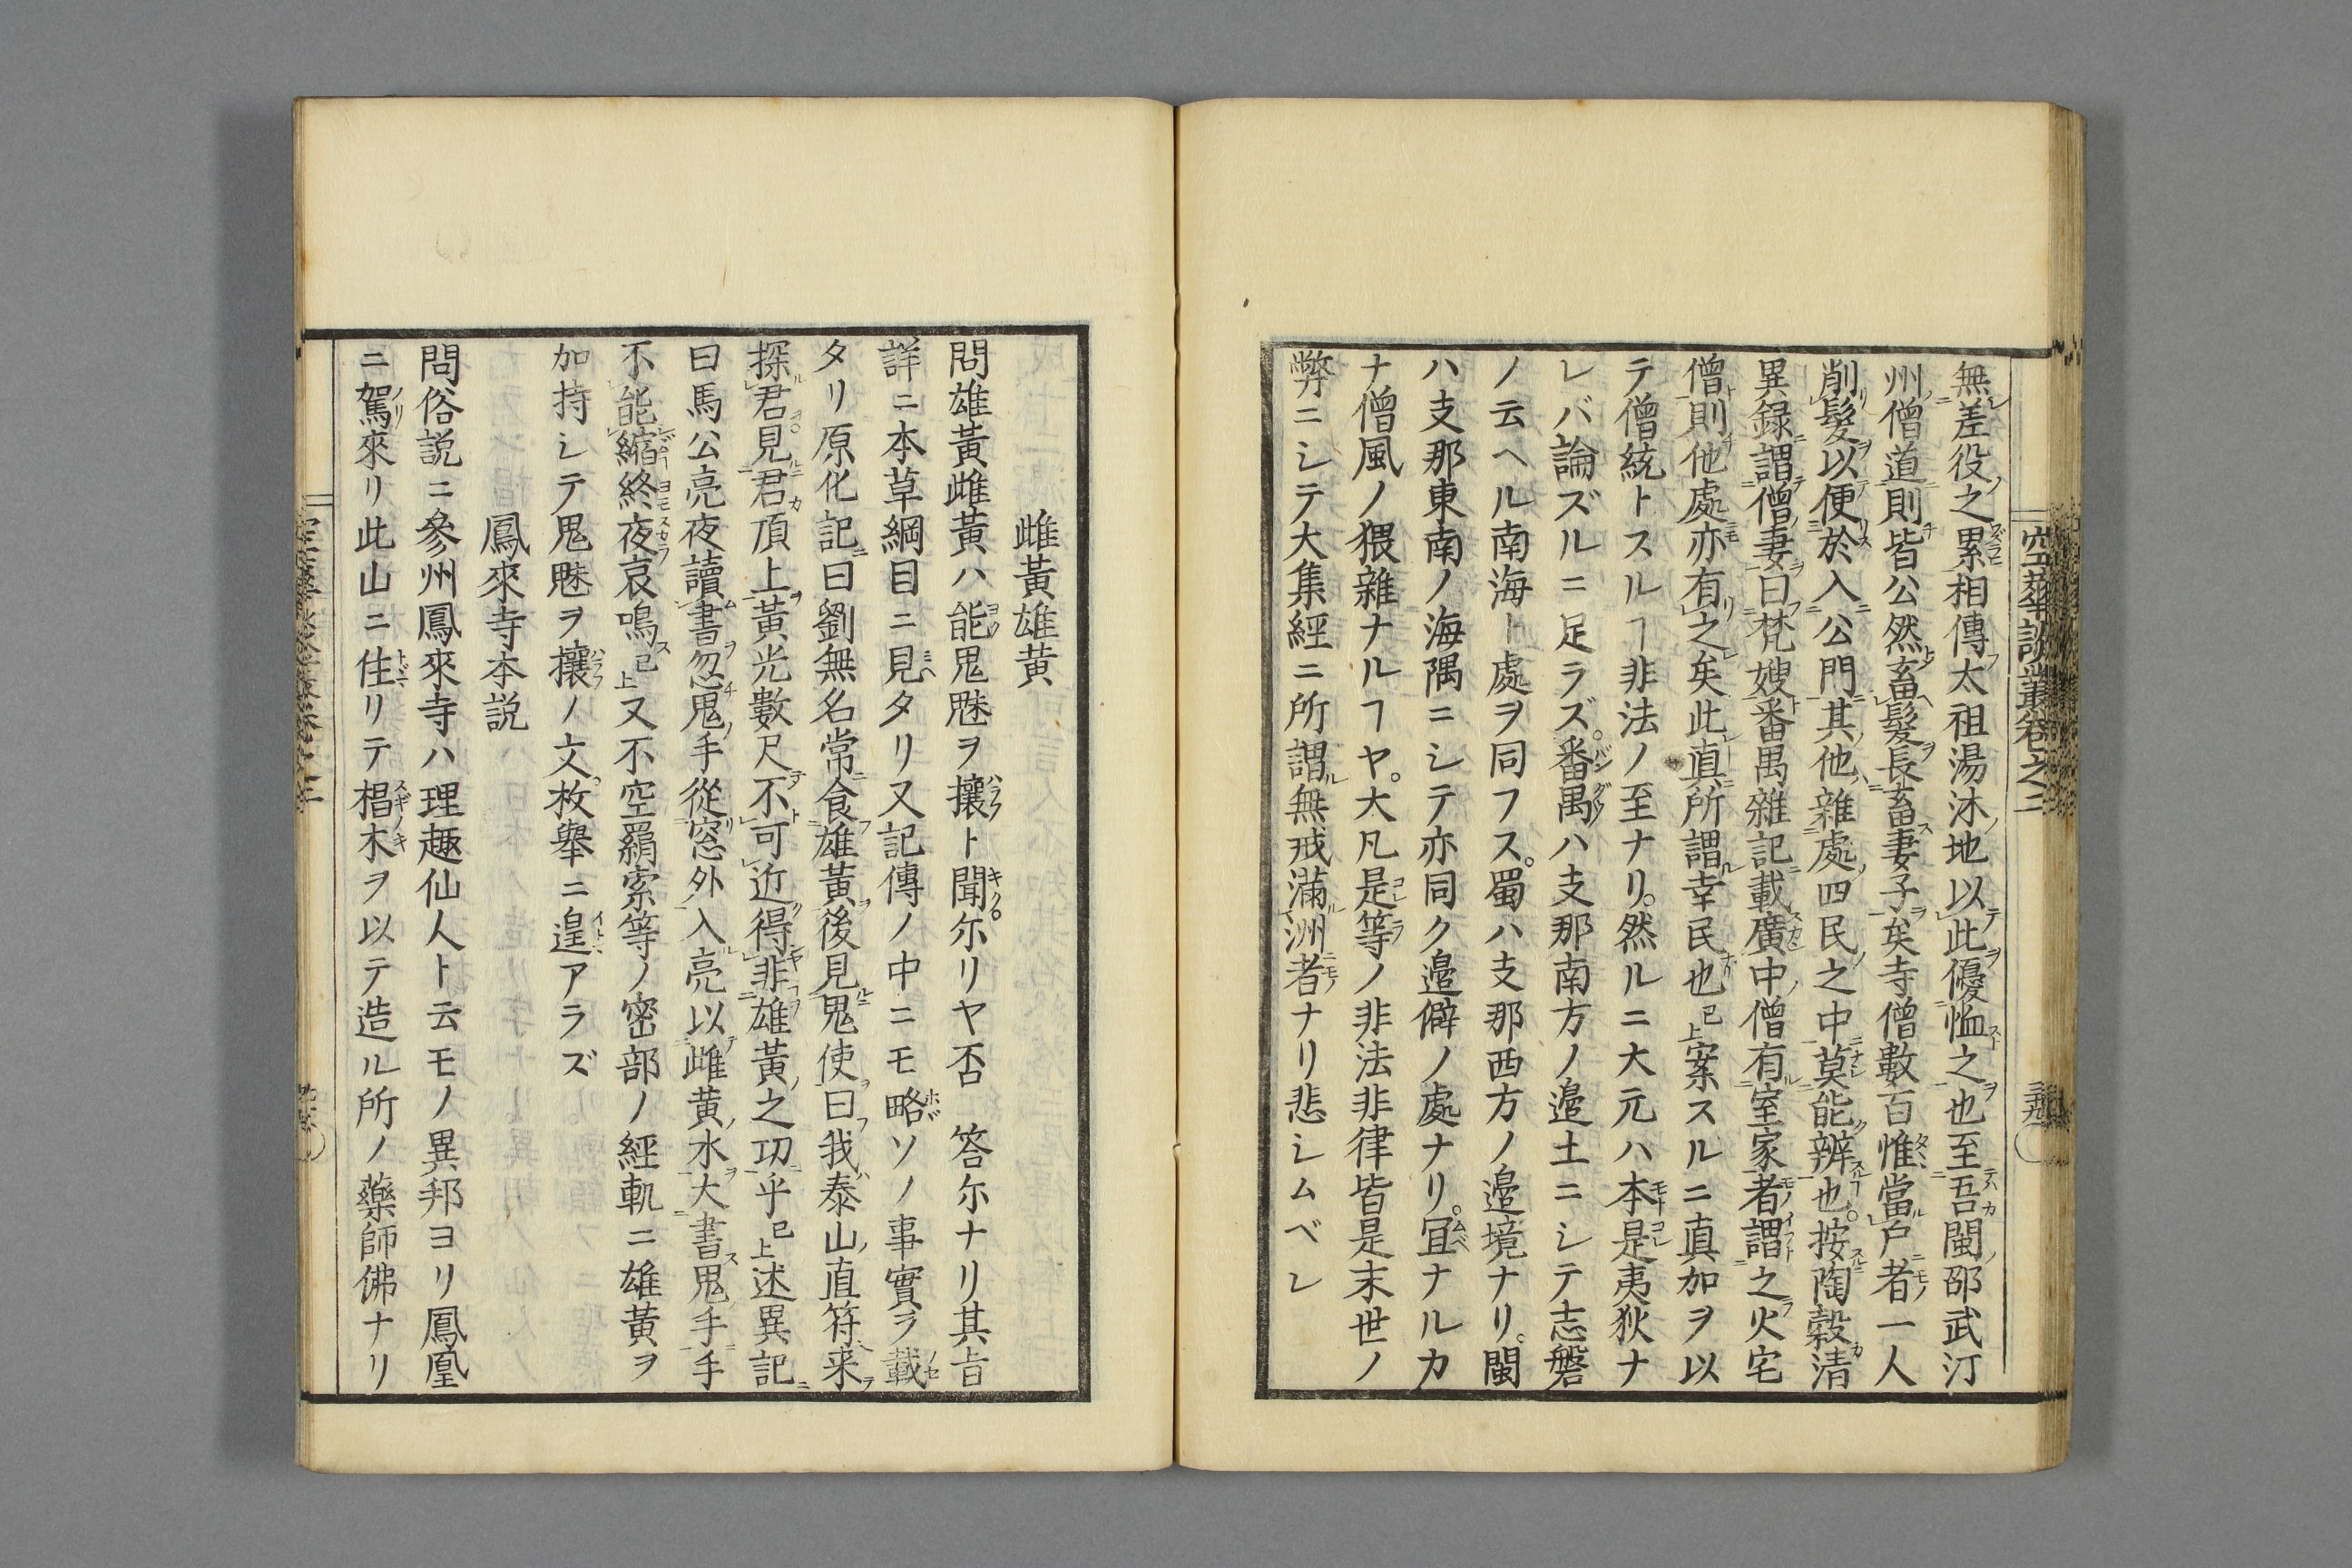 無差役之累相傳太祖湯沐地以此優恤之也至吾閩邵武汀
州僧道則皆公然畜髮長畜妻子矣寺僧數百惟當戸者一人
削髮以便於入公門其他雜處四民之中莫能辨也。按陶穀清
異録謂僧妻曰梵嫂番禺雜記載廣中僧有室家者謂之火宅
僧則他處亦有之矣此真所謂幸民也已上案スルニ真加ヲ以
テ僧統トスルヿ非法ノ至ナリ。然ルニ大元ハ本是夷狄ナ
レバ論ズルニ足ラズ。番禺ハ支那南方ノ邉土ニシテ志磐
ノ云ヘル南海ト處ヲ同フス。蜀ハ支那西方ノ邉境ナリ。閩
ハ支那東南ノ海隅ニシテ亦同ク邉僻ノ處ナリ。冝ナルカ
ナ僧風ノ猥雜ナルヿヤ。大凡是等ノ非法非律皆是末世ノ
弊ニシテ大集經ニ所謂無戒滿洲者ナリ悲シムベシ
雌黃雄黄
問雄黃雌黃ハ能鬼魅ヲ攘ト聞。尓リヤ否 答尓ナリ其旨
詳ニ本草綱目ニ見タリ又記傳ノ中ニモ略ソノ事實ヲ載
タリ原化記曰劉無名常食雄黃後見鬼使曰我泰山直符来
探君。見君頂上黃光數尺不可近得非雄黃之功乎已上述異記
曰馬公亮夜讀書忽鬼手從窓外入亮以雌黄水大書鬼手手
不能縮終夜哀鳴已上又不空羂索等ノ密部ノ經軌ニ雄黃ヲ
加持シテ鬼魅ヲ攘ノ文。枚舉ニ遑アラズ
鳳來寺本説
問俗説ニ參州鳳來寺ハ理趣仙人ト云モノ異邦ヨリ鳳凰
ニ駕來リ此山ニ住リテ椙木ヲ以テ造ル所ノ藥師佛ナリ